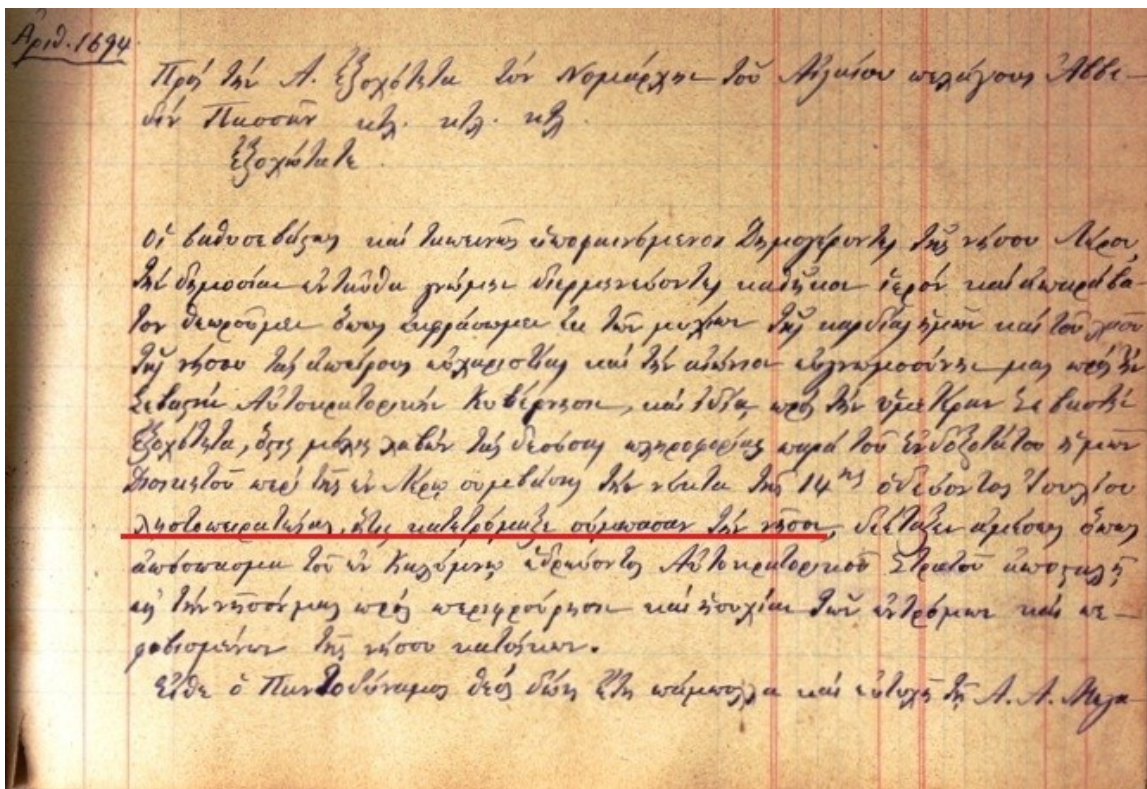 Ἀριθ. 1694
Πρὸς τὴν Α. Ἐξοχότητα τὸν Νομάρχην τοῦ Αἰγαίου πελάγους Ἀββε-
δὶν Πασσᾶν κτλ. κτλ. κτλ
Ἐξοχώτατε
Οἱ βαθυσεβάστως καὶ ταπεινῶς ὑποφαινόμενοι Δημογέροντες τῆς νήσου Λέρου,
τὴν δημοσίαν ἐνταῦθα γνώμην διερμηνεύοντες καθῆκον ἱερόν καὶ ἀπαράβα
τον θεωροῦμεν ὅπως ἐκφράσωμεν ἐκ τῶν μυχίων τῆς καρδίας ἡμῶν καὶ τοῦ λαοῦ
τῆς νήσου τὰς ἀπείρους εὐχαριστίας καὶ τὴν αἰώνιον εὐγνωμοσύνην μας πρὸς τὴν
Σεβαστὴν Αὐτοκρατορικὴν Κυβέρνησιν, καὶ ἰδίᾳ πρὸς τὴν ὑμετέραν Σεβαστὴν
Ἐξοχότητα, ὅστις μόλις λαβὼν τὰς δεούσας πληροφορίας παρὰ τοῦ ἐνδοξοτάτου ἡμῶν
Διοικητοῦ περὶ τῆς ἐν Λέρῳ συμβάσης τὴν νύκτα τῆς 14ης ὁδεύοντος Ἰουλίου
λῃστοπειρατείας, ἥτις κατετρόμαξε σύμπασαν τὴν νῆσον, διέταξεν ἀμέσως ὅπως
ἀπόσπασμα τοῦ ἐν Καλύμνῳ ἑδρεύοντος Αὐτοκρατορικοῦ Στρατοῦ ἀποσταλῇ
εἰς τὴν νῆσόν μας πρὸς περιφρούρησιν καὶ ἡσυχίαν τῶν ἐντρόμων καὶ πε-
φοβισμένων τῆς νήσου κατοίκων.
Εἴθε ὁ Παντοδύναμος Θεὸς δῴη ἔτη πάμπολλα καὶ εὐτυχῆ τῇ Α. Α. Μεγα